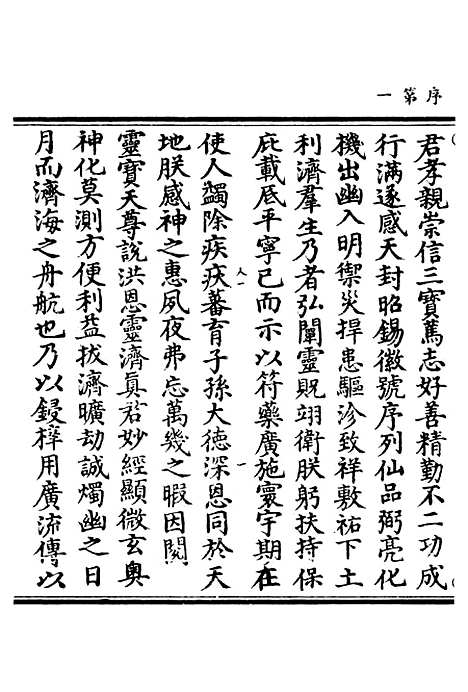 序第一
君孝親崇信三寶篤志好善精勤不二功成
行滿遂感天封昭錫徽號序列仙品弼亮化
機出幽入明禦災捍患驅沴致祥敷祐下土
利濟羣生乃者弘闡靈貺翊衛朕躬扶持保
庇載底平寧已而示以符藥廣施寰宇期在
使人蠲除疾疢蕃育子孫大德深恩同於天
地朕感神之惠夙夜弗忘萬幾之暇因閱
靈寶天尊說洪恩靈濟真君妙經顯微玄奧
神化莫測方便利益拔濟曠劫誠燭幽之日
月而濟海之舟航也乃以鋟梓用廣流傳以